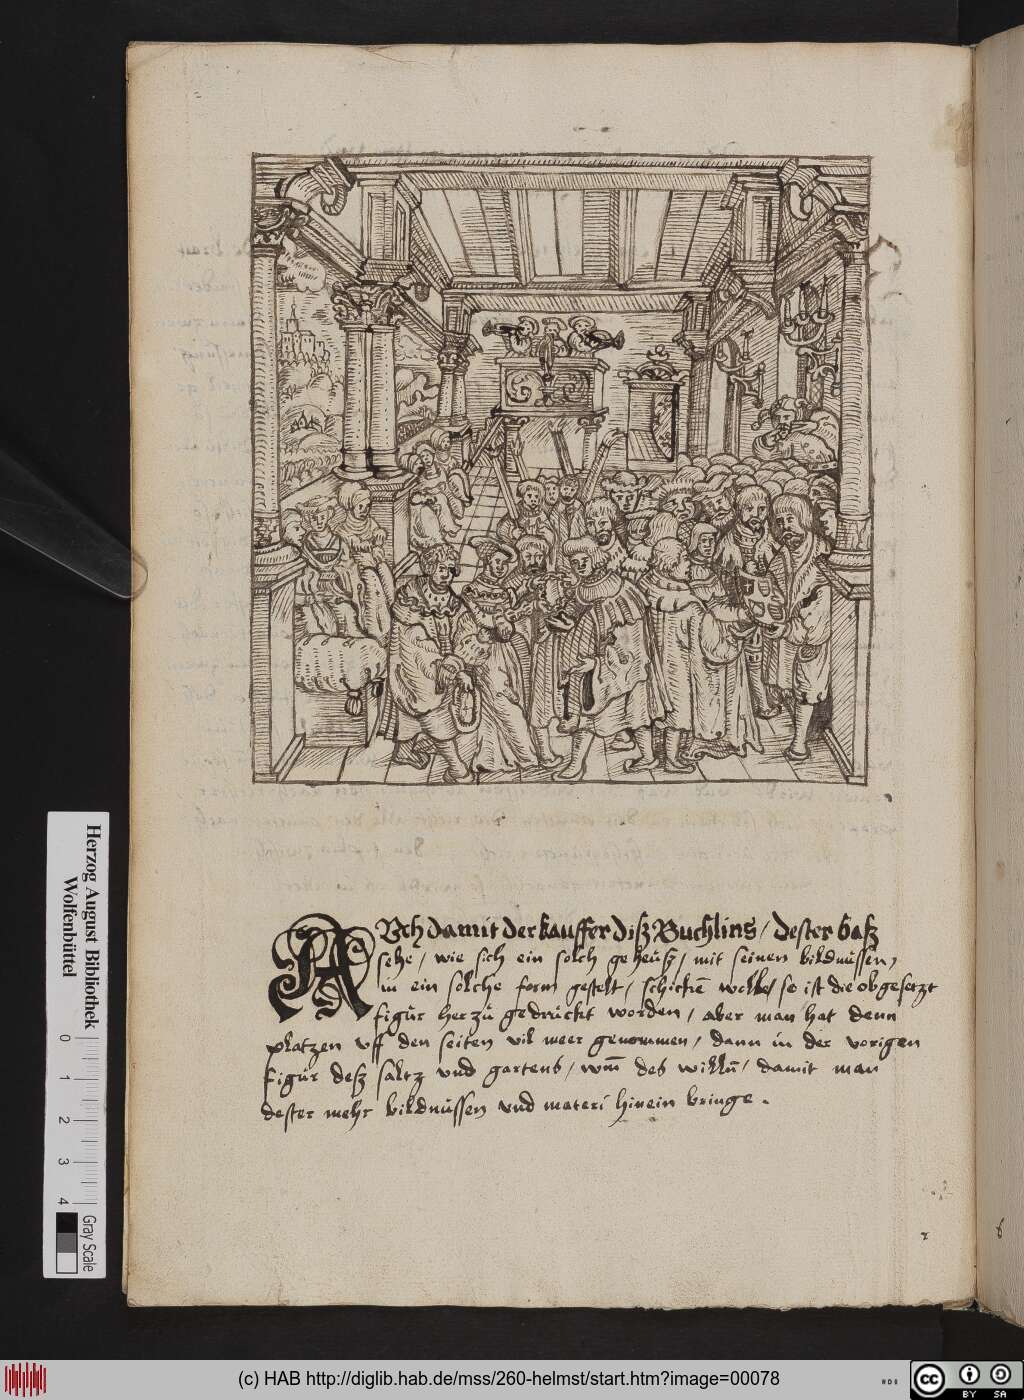 AUch damit der kauffer diß Buchlins / dester baß
sehe / wie sich ein solch geheuß / mit seinen bildnussen,
in ein solche form gestelt / schickē welle / so ist die obgesetzt
figur herzu gedruckt worden / aber man hat denn
platzen uff den seiten vil meer genommen / dann in der vorigen
figur deß saltz und gartens / um̄ des willn̄ / damit man
dester mehr bildnussen und materi hinein bringe.
Herzog August Bibliothek
Wolfenbüttel
0 1 2 3 4
Gray Scale
(c) HAB http://diglib.hab.de/mss/260-helmst/start.htm?image=00078
HAB
cc BY SA